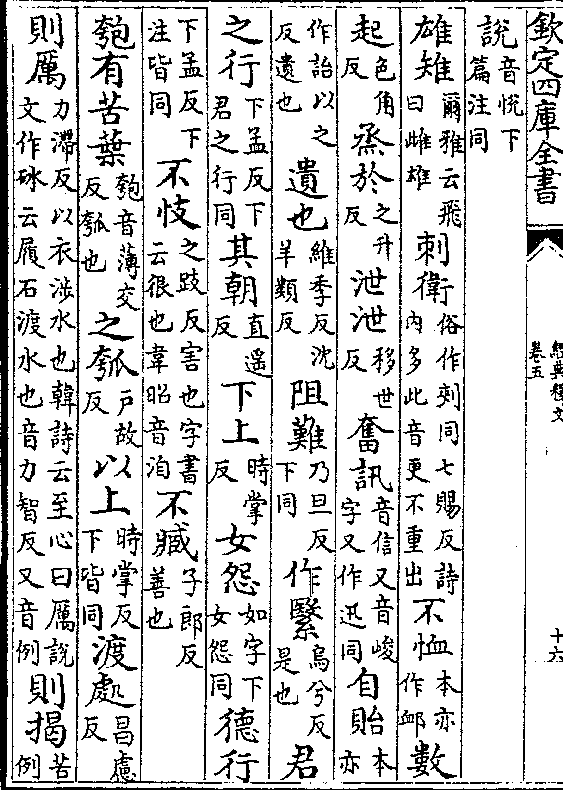 欽定四庫全書
經典釋文
卷五
十六
說音悅下篇注同
雄雉爾雅云飛曰雌雄刺衛俗作刾同七賜反詩内多此音更不重出不恤本亦作卹數
起色角反烝於之升反泄泄移世反奮訊音信又音峻字又作迅同自貽本亦
作詒以之反遺也遺也維季反沈羊類反阻難乃旦反下同作繄烏兮反是也君
之行下孟反下君之行同其朝直遥反下上時掌反女怨如字下女怨同德行
下孟反下注皆同不忮之跂反害也字書云很也韋昭音洎不臧子郎反善也
匏有苦葉匏音薄交反瓠也之瓠戶故反以上時掌反下皆同渡處昌慮反
則厲力滯反以衣涉水也韓詩云至心曰厲說文作砅云履石渡水也音力智反又音例則揭苦例